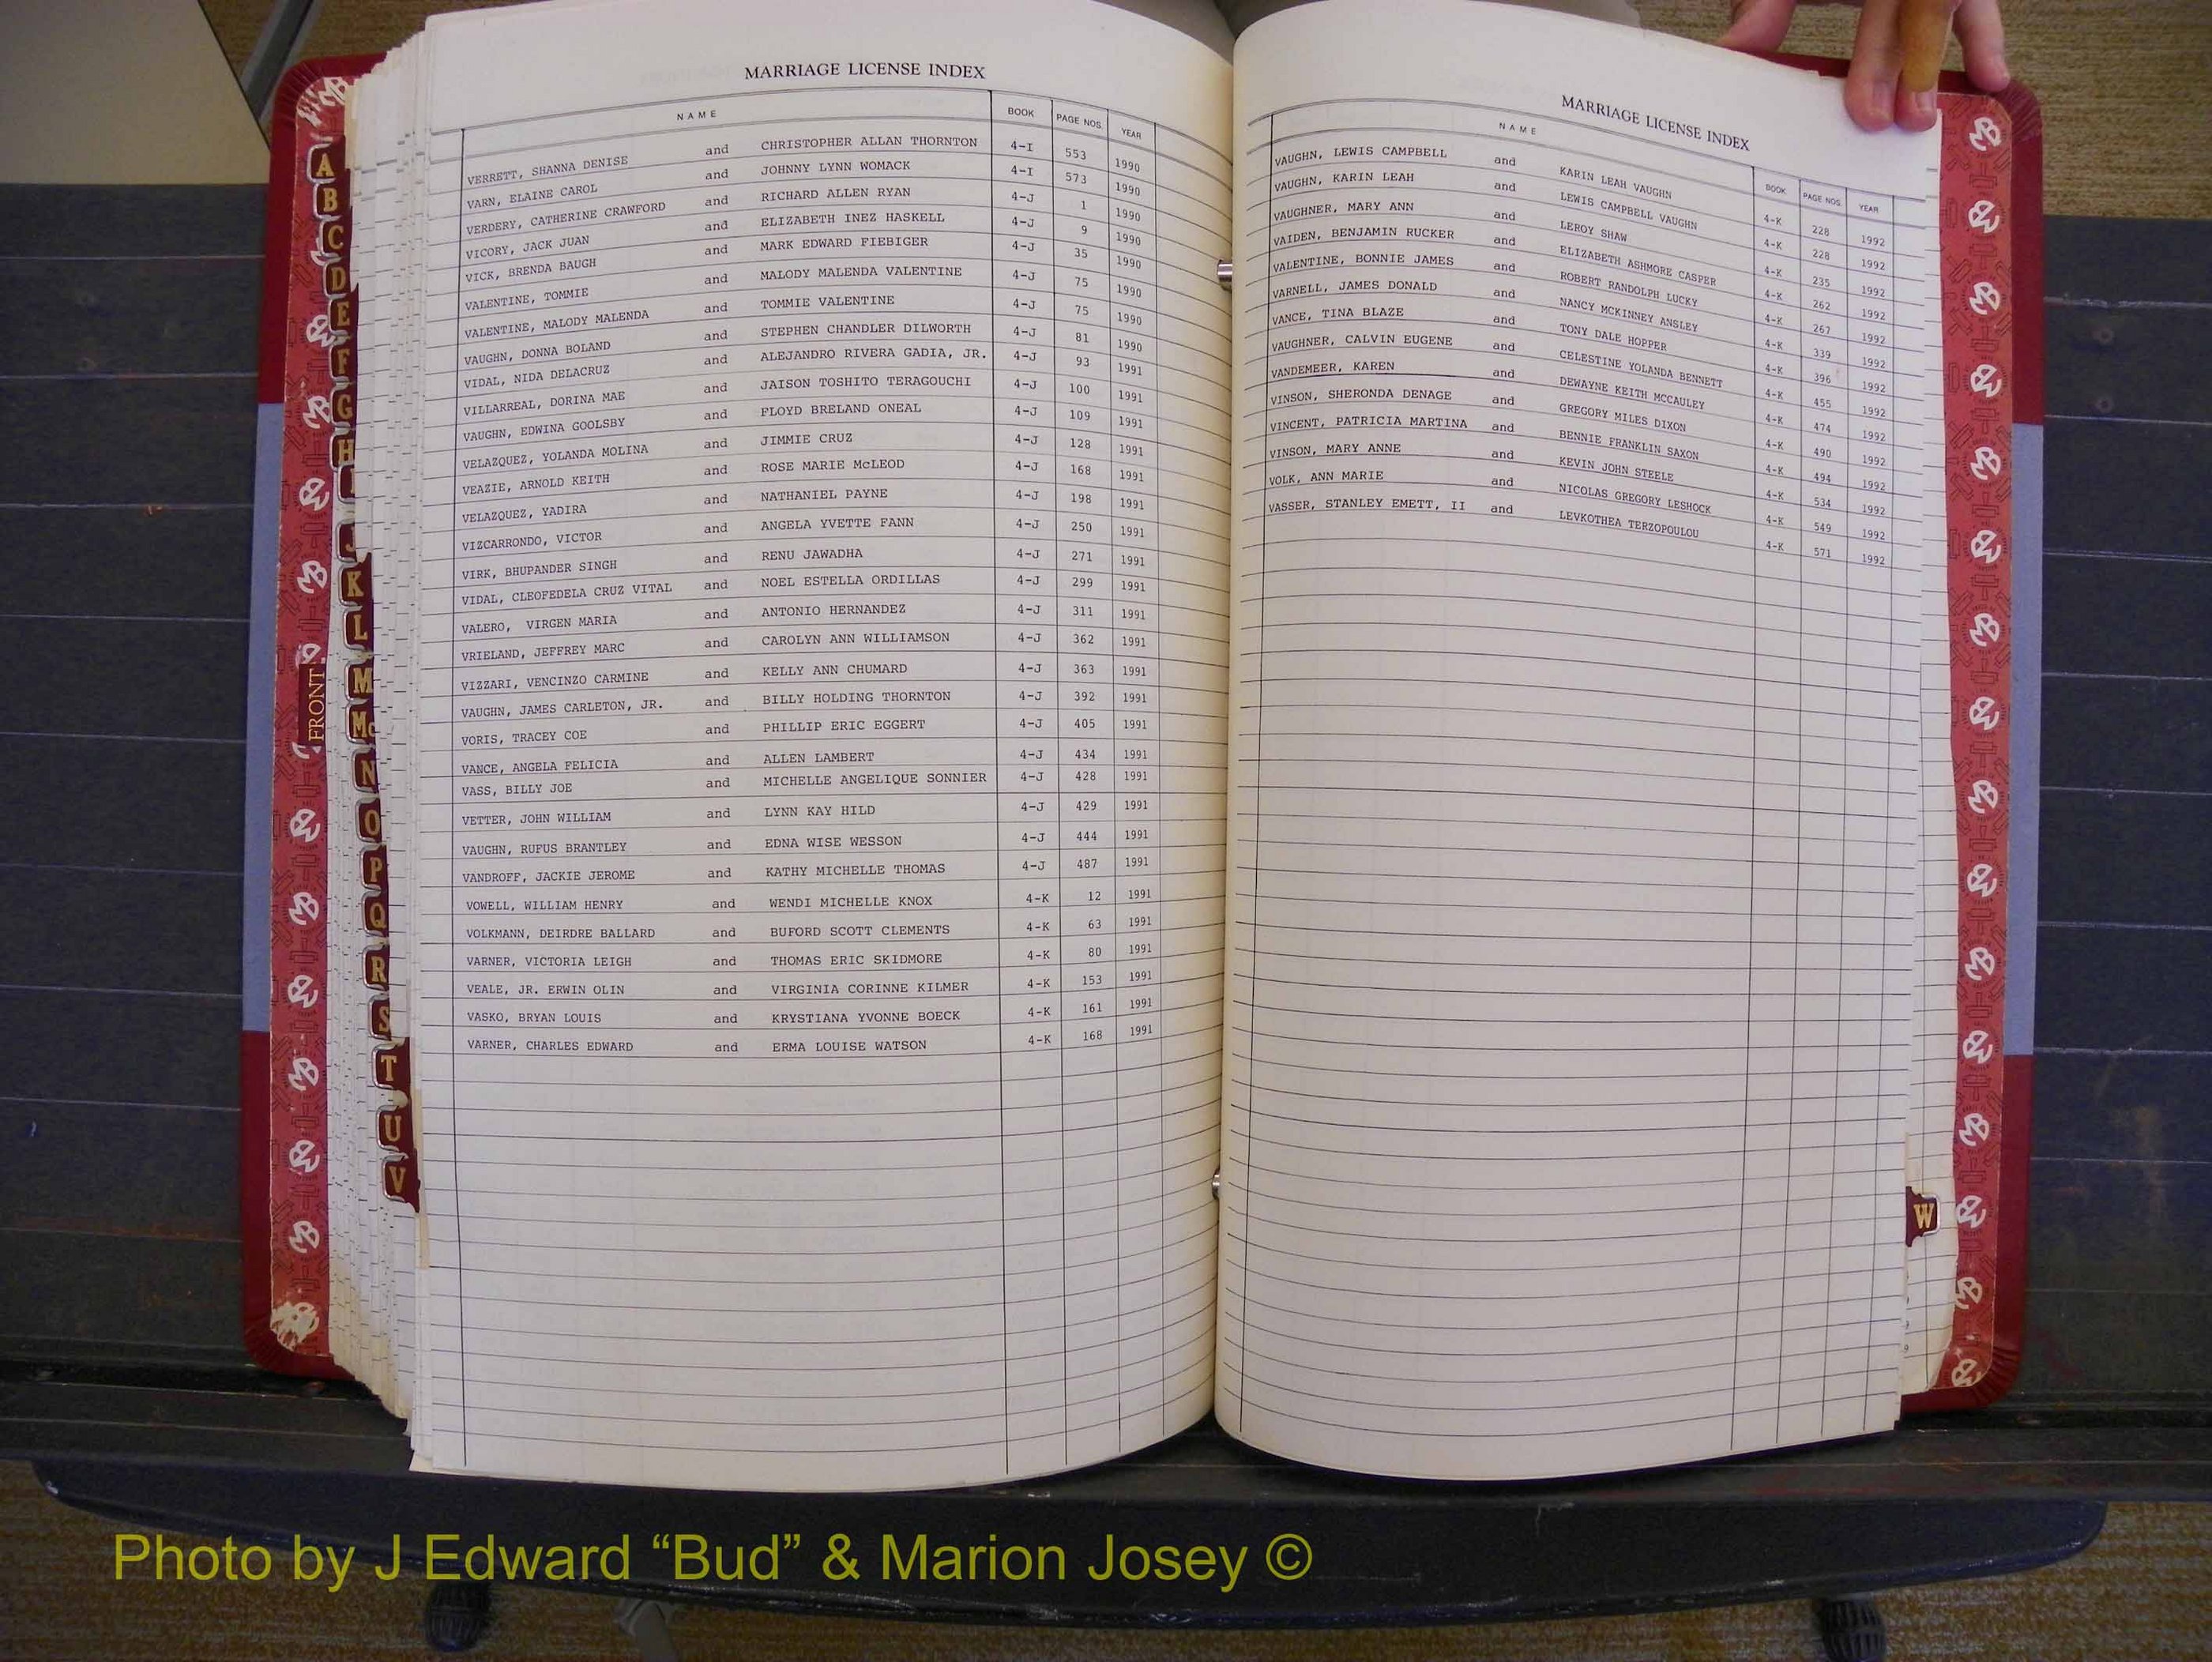 MARRIAGE LICENSE INDEX
NAME BOOK PAGE NOS. YEAR
VERRETT, SHANNA DENISE and CHRISTOPHER ALLAN THORNTON 4-I 553 1990
VARN, ELAINE CAROL and JOHNNY LYNN WOMACK 4-I 573 1990
VERDERY, CATHERINE CRAWFORD and RICHARD ALLEN RYAN 4-J 1 1990
VICORY, JACK JUAN and ELIZABETH INEZ HASKELL 4-J 9 1990
VICK, BRENDA BAUGH and MARK EDWARD FIEBIGER 4-J 35 1990
VALENTINE, TOMMIE and MALODY MALENDA VALENTINE 4-J 75 1990
VALENTINE, MALODY MALENDA and TOMMIE VALENTINE 4-J 75 1990
VAUGHN, DONNA BOLAND and STEPHEN CHANDLER DILWORTH 4-J 81 1990
VIDAL, NIDA DELACRUZ and ALEJANDRO RIVERA GADIA, JR. 4-J 93 1991
VILLARREAL, DORINA MAE and JAISON TOSHITO TERAGOUCHI 4-J 100 1991
VAUGHN, EDWINA GOOLSBY and FLOYD BRELAND ONEAL 4-J 109 1991
VELAZQUEZ, YOLANDA MOLINA and JIMMIE CRUZ 4-J 128 1991
VEAZIE, ARNOLD KEITH and ROSE MARIE McLEOD 4-J 168 1991
VELAZQUEZ, YADIRA and NATHANIEL PAYNE 4-J 198 1991
VIZCARRONDO, VICTOR and ANGELA YVETTE FANN 4-J 250 1991
VIRK, BHUPANDER SINGH and RENU JAWADHA 4-J 271 1991
VIDAL, CLEOFEDELA CRUZ VITAL and NOEL ESTELLA ORDILLAS 4-J 299 1991
VALERO, VIRGEN MARIA and ANTONIO HERNANDEZ 4-J 311 1991
VRIELAND, JEFFREY MARC and CAROLYN ANN WILLIAMSON 4-J 362 1991
VIZZARI, VENCINZO CARMINE and KELLY ANN CHUMARD 4-J 363 1991
VAUGHN, JAMES CARLETON, JR. and BILLY HOLDING THORNTON 4-J 392 1991
VORIS, TRACEY COE and PHILLIP ERIC EGGERT 4-J 405 1991
VANCE, ANGELA FELICIA and ALLEN LAMBERT 4-J 434 1991
VASS, BILLY JOE and MICHELLE ANGELIQUE SONNIER 4-J 428 1991
VETTER, JOHN WILLIAM and LYNN KAY HILD 4-J 429 1991
VAUGHN, RUFUS BRANTLEY and EDNA WISE WESSON 4-J 444 1991
VANDROFF, JACKIE JEROME and KATHY MICHELLE THOMAS 4-J 487 1991
VOWELL, WILLIAM HENRY and WENDI MICHELLE KNOX 4-K 12 1991
VOLKMANN, DEIRDRE BALLARD and BUFORD SCOTT CLEMENTS 4-K 63 1991
VARNER, VICTORIA LEIGH and THOMAS ERIC SKIDMORE 4-K 80 1991
VEALE, JR. ERWIN OLIN and VIRGINIA CORINNE KILMER 4-K 153 1991
VASKO, BRYAN LOUIS and KRYSTIANA YVONNE BOECK 4-K 161 1991
VARNER, CHARLES EDWARD and ERMA LOUISE WATSON 4-K 168 1991
MARRIAGE LICENSE INDEX
NAME BOOK PAGE NOS. YEAR
VAUGHN, LEWIS CAMPBELL and KARIN LEAH VAUGHN 4-K 228 1992
VAUGHN, KARIN LEAH and LEWIS CAMPBELL VAUGHN 4-K 228 1992
VAUGHNER, MARY ANN and LEROY SHAW 4-K 235 1992
VAIDEN, BENJAMIN RUCKER and ELIZABETH ASHMORE CASPER 4-K 262 1992
VALENTINE, BONNIE JAMES and ROBERT RANDOLPH LUCKY 4-K 267 1992
VARNELL, JAMES DONALD and NANCY MCKINNEY ANSLEY 4-K 339 1992
VANCE, TINA BLAZE and TONY DALE HOPPER 4-K 396 1992
VAUGHNER, CALVIN EUGENE and CELESTINE YOLANDA BENNETT 4-K 455 1992
VANDEMEER, KAREN and DEWAYNE KEITH MCCAULEY 4-K 474 1992
VINSON, SHERONDA DENAGE and GREGORY MILES DIXON 4-K 490 1992
VINCENT, PATRICIA MARTINA and BENNIE FRANKLIN SAXON 4-K 494 1992
VINSON, MARY ANNE and KEVIN JOHN STEELE 4-K 534 1992
VOLK, ANN MARIE and NICOLAS GREGORY LESHOCK 4-K 549 1992
VASSER, STANLEY EMETT, II and LEVKOTHEA TERZOPOULOU 4-K 571 1992
A
B
C
D
E
F
G
H
I
J
K
L
M
Mc
N
O
P
Q
R
S
T
U
V
W
FRONT
Photo by J Edward “Bud” & Marion Josey ©